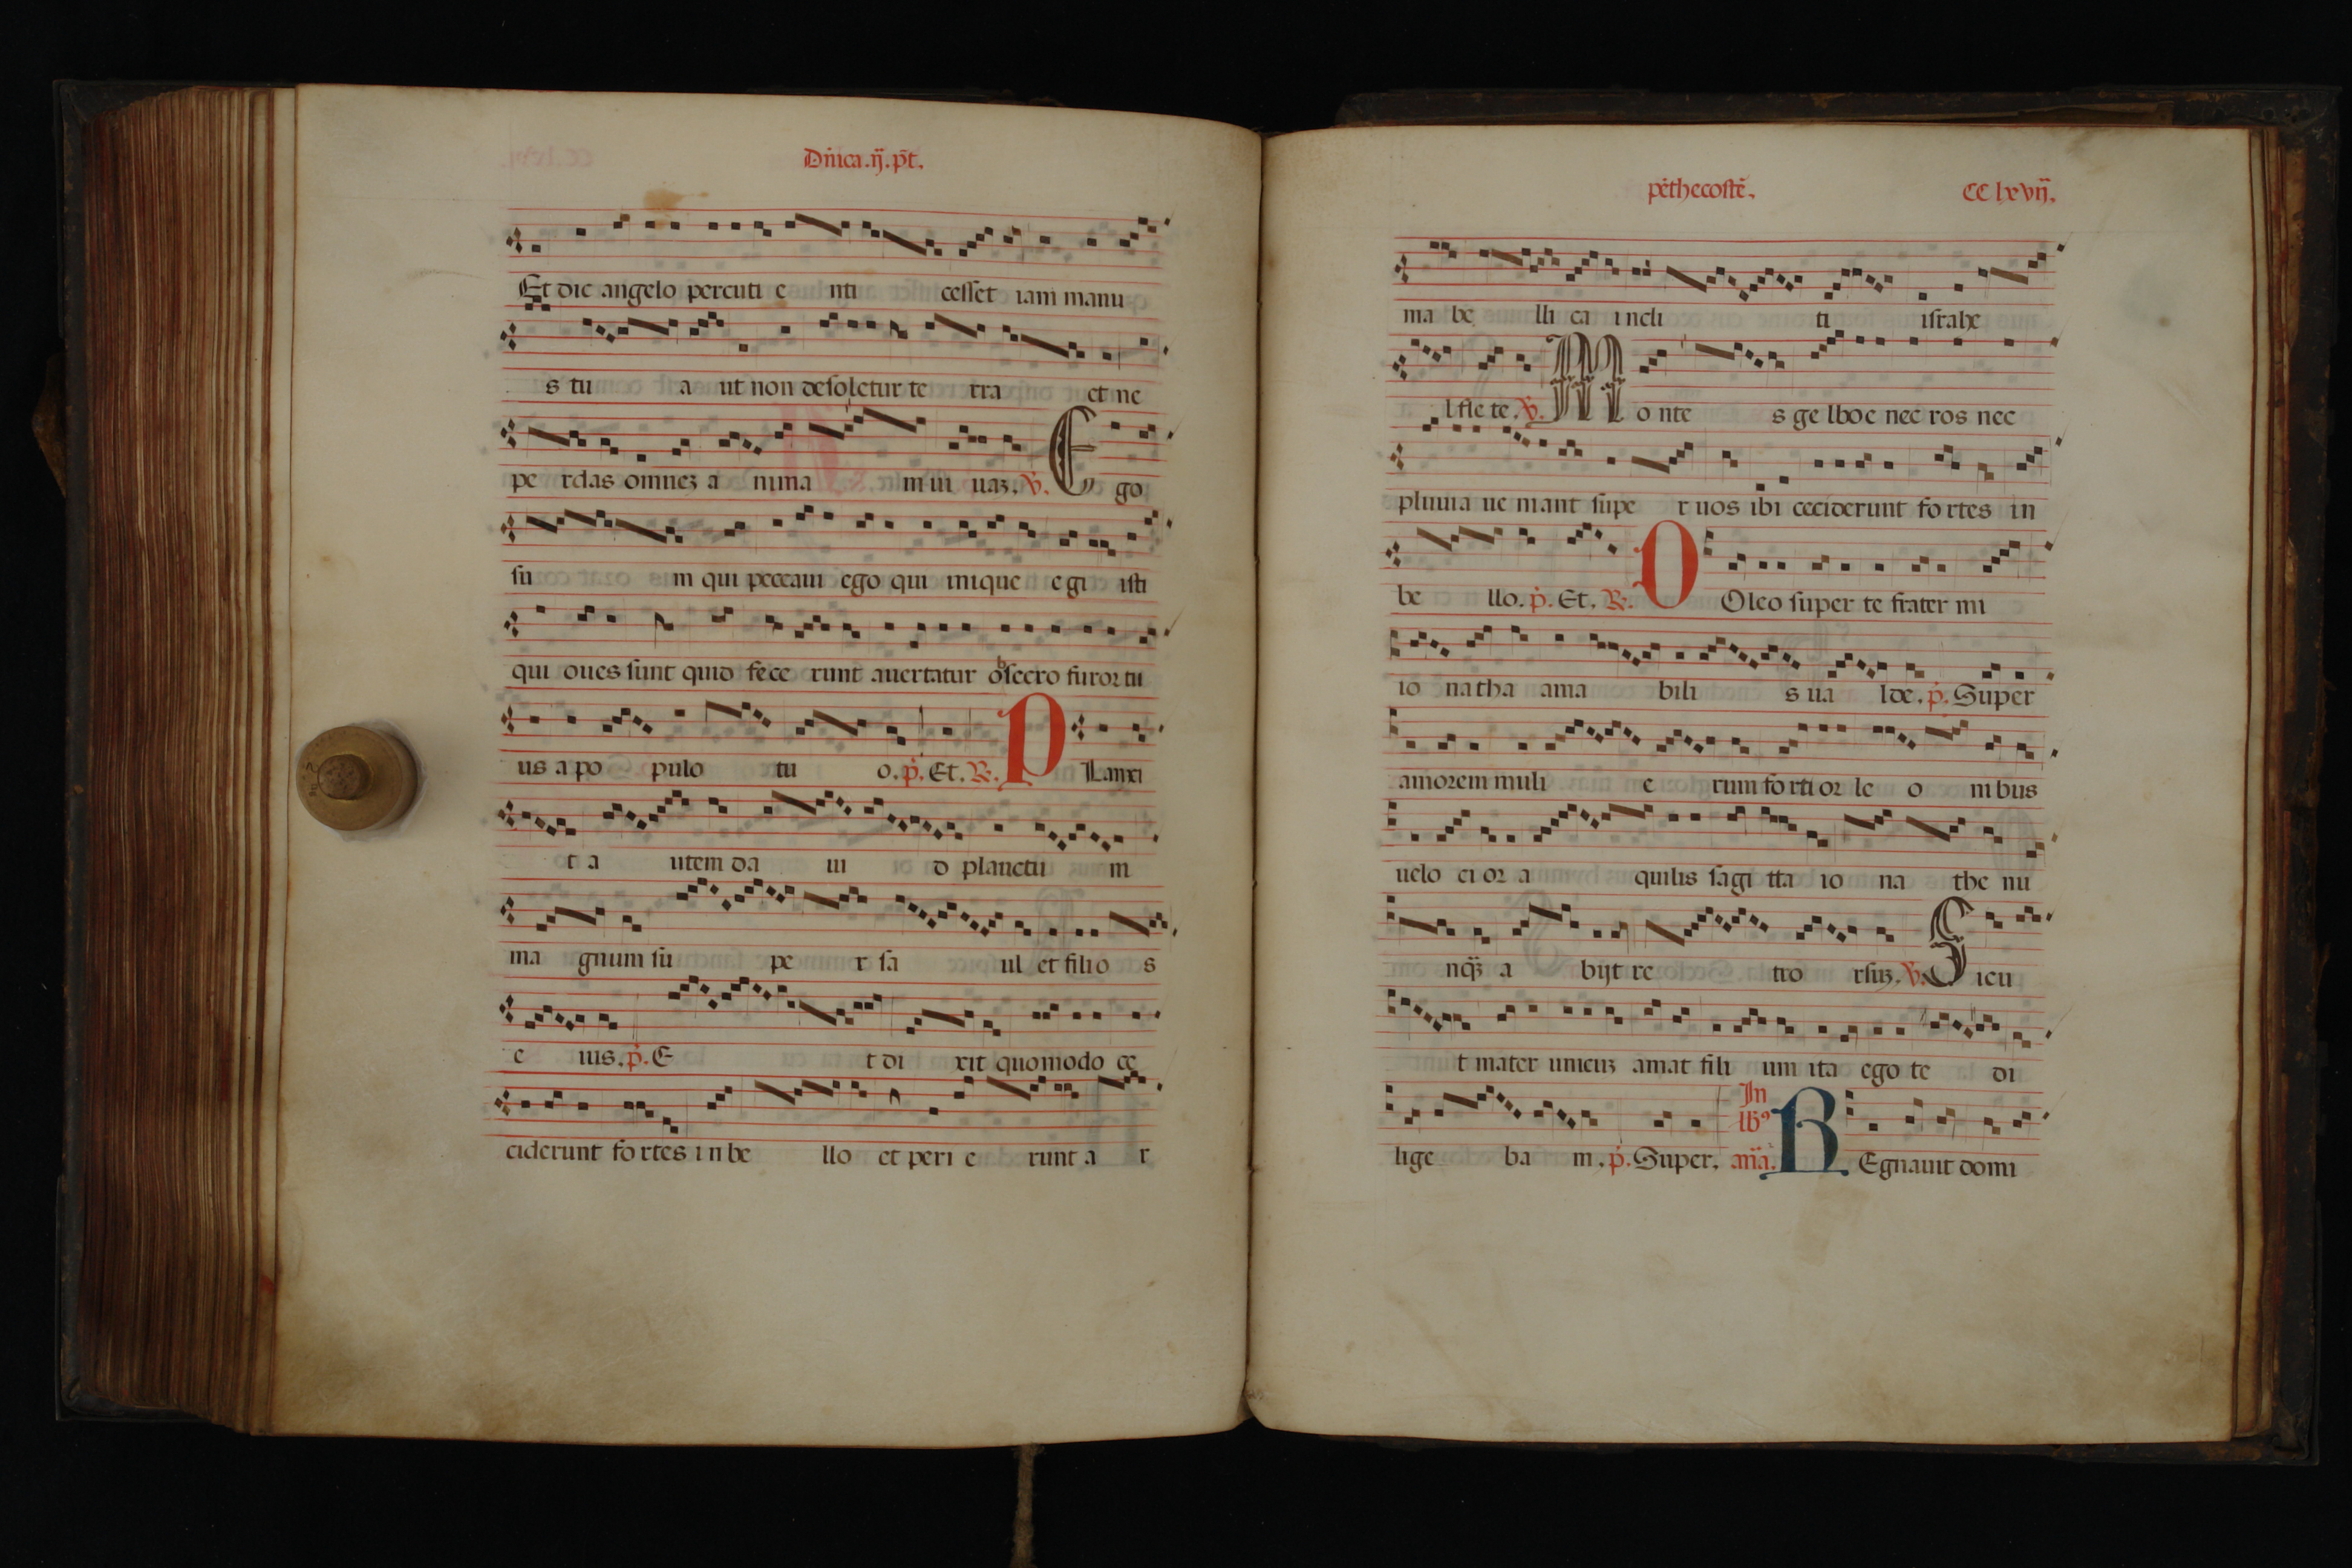 Dñica.ij.p̃t.
Et dic angelo percuti e nti cesset iam manu
s tu a ut non desoletur te rra et ne
pe rdas omnez a nima m ui uaz. V. E go
su m qui peccaui ego qui inique e gi isti
qui oues sunt quid fece runt auertatur obsecro furor tu
us a po pulo tu o. p. Et. R. P Lanxi
t a utem da ui d planctu m
ma gnum su pe r sa ul et filio s
e ius. p. E t di xit quomodo ce
ciderunt fo rtes i n be llo et peri e runt a r
pẽthecostẽ. CC lxvij.
ma be lli ca incli ti israhe
l fle te. V. M o nte s ge lboe nec ros nec
pluuia ue niant supe r uos ibi ceciderunt fo rtes in
be llo. p. Et. R. D Oleo super te frater mi
io natha ama bili s ua lde. p. Super
amorem muli e rum fo rti or le o nibus
uelo ci or a quilis sagi tta io na the nu
nq̃z a bijt re tro rsuz. V. S icu
t mater unicuz amat fili um ita ego te di
lige ba m. p. Super. In lb9 añã. R Egnauit domi